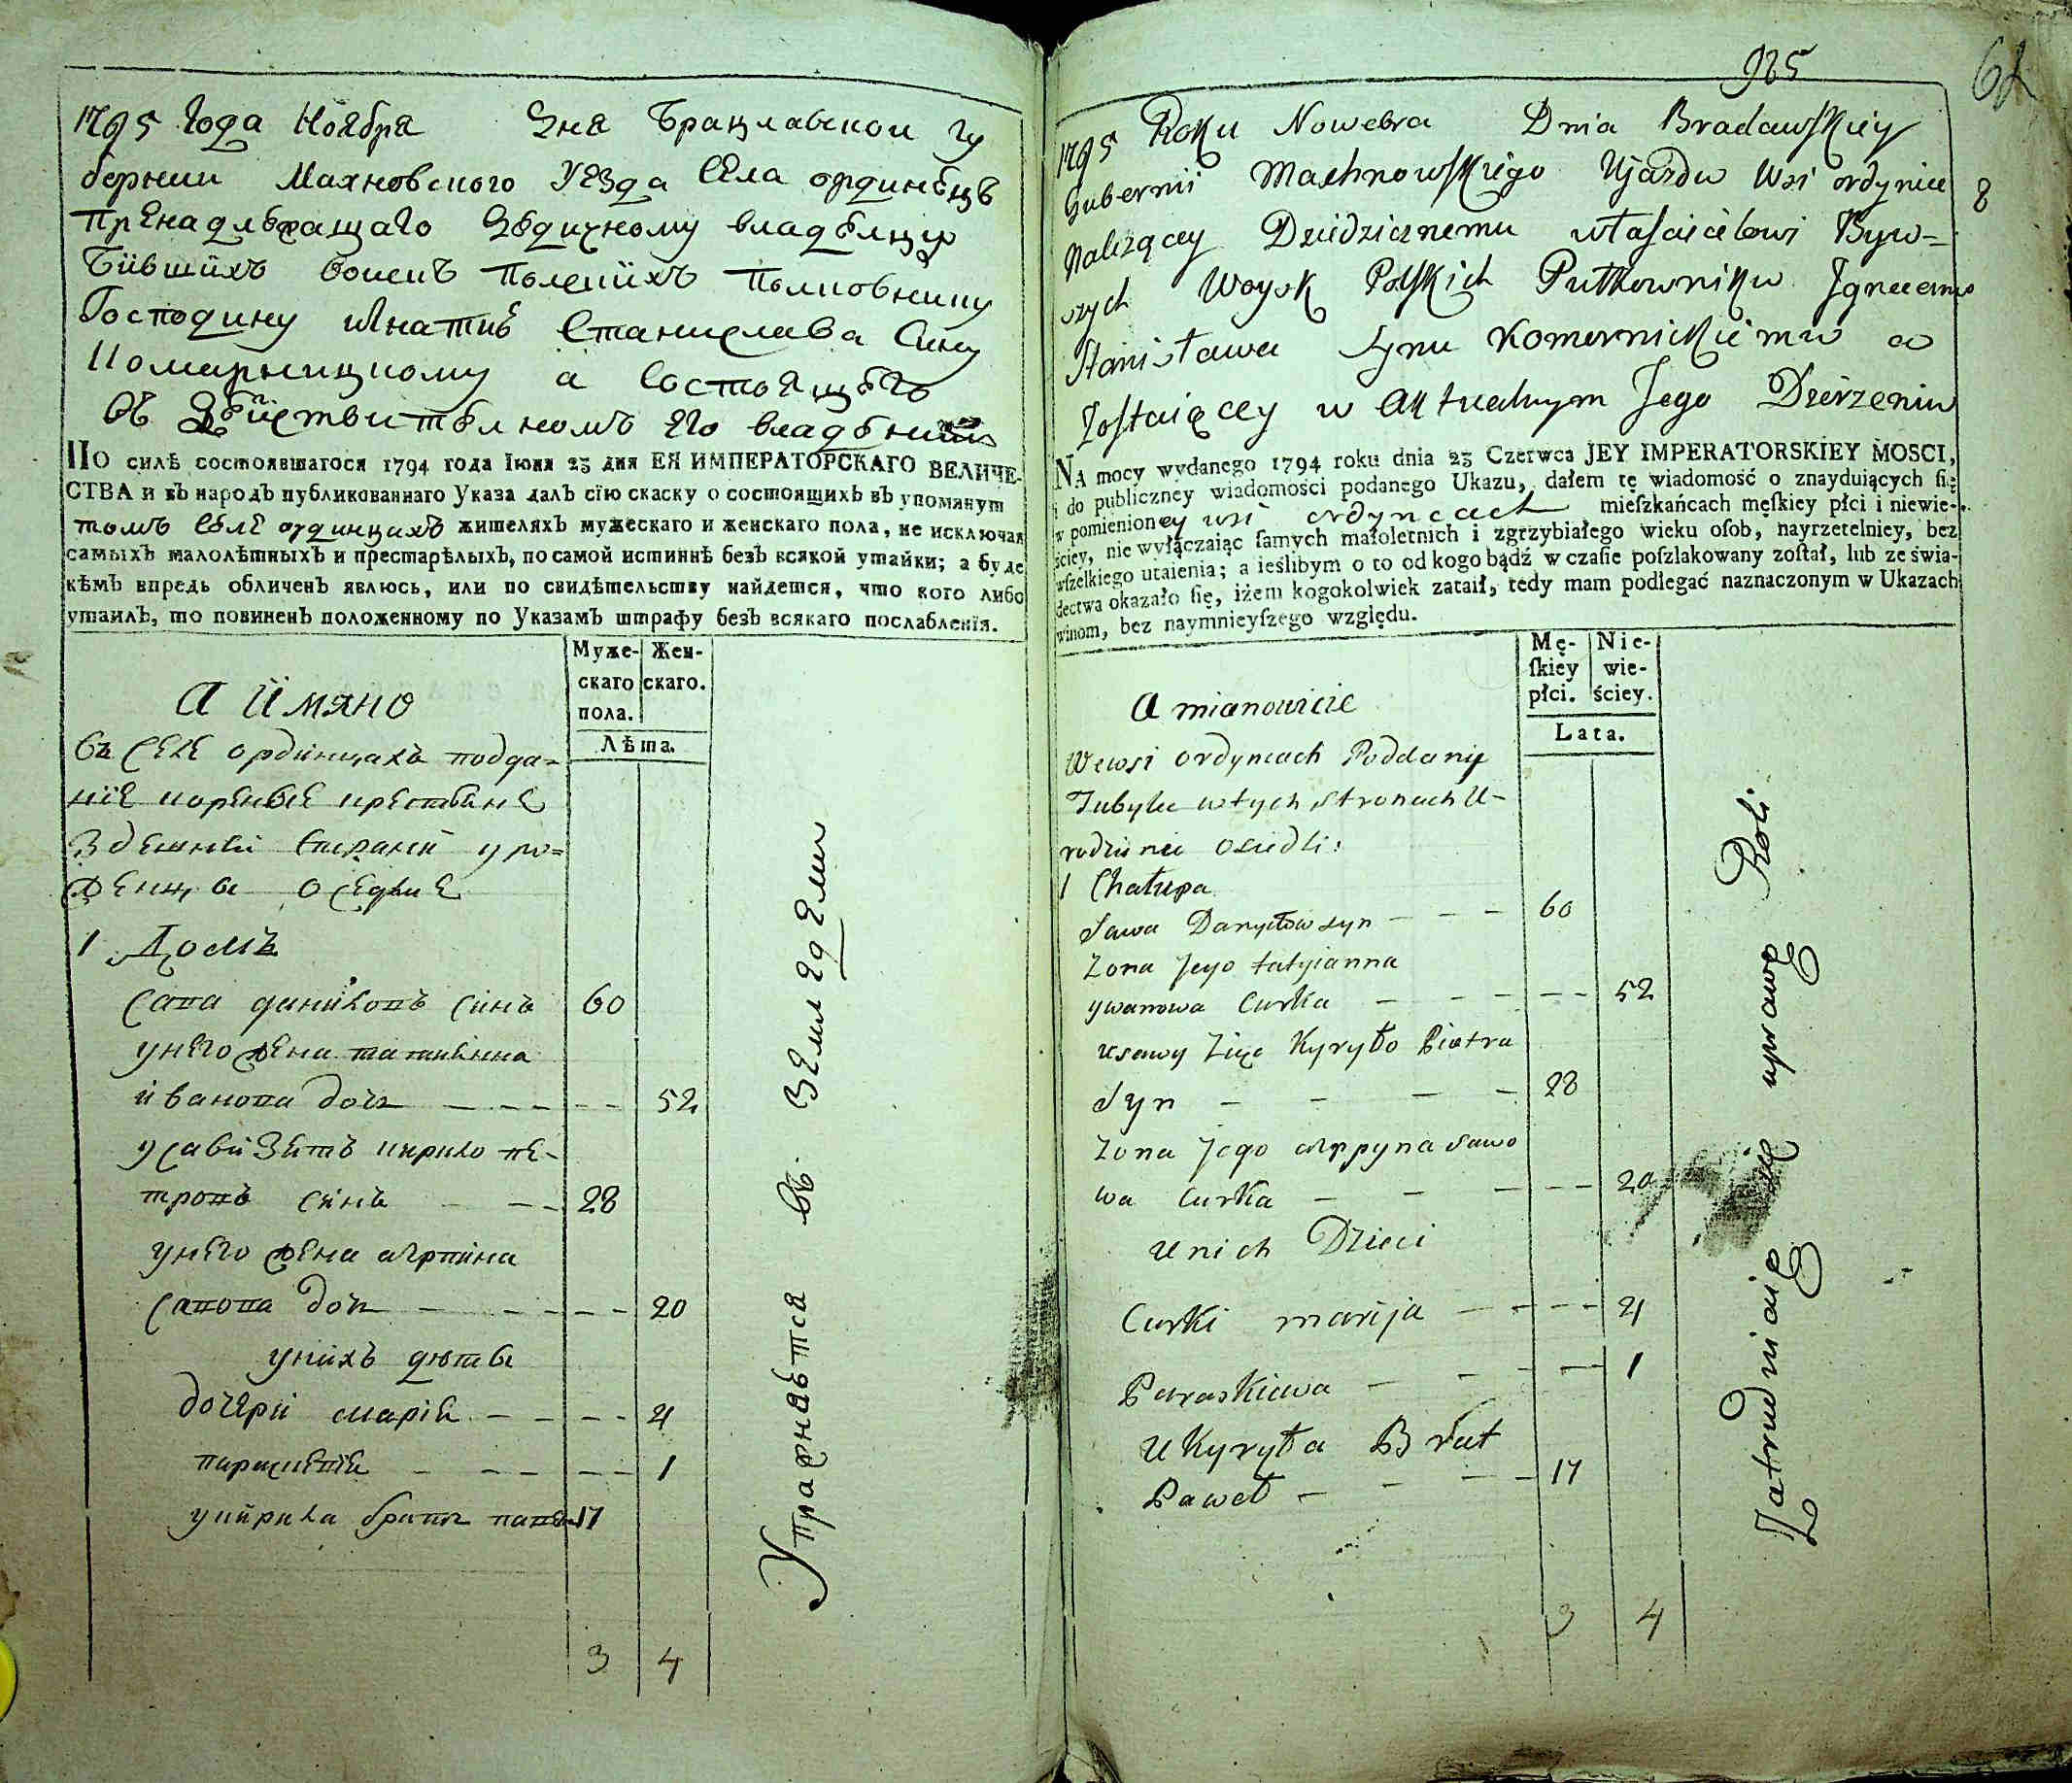 1795 Года Ноября Дня Брацлавской гу
бернии Махновского Уезда села ординецъ
Пренадлежащаго Дедичному владелцу
Бившихъ воискъ Полскихъ Полковнику
Господину Игнатию Станислава Сину
Комарницкому а состоящего
въ Действителномъ Его владении
ПО силѣ состоявшагося 1794 года Іюня 23 дня ЕЯ ИМПЕРАТОРСКАГО ВЕЛИЧЕ-
СТВА и въ народъ публикованнаго Указа далъ сію скаску о состоящихъ въ упомянут
томъ селе ординцихъ жителяхъ мужескаго и женскаго пола, не исключая
самыхъ малолѣтныхъ и престарѣлыхъ, по самой истиннѣ безъ всякой утайки; а буде
кѣмъ впредь обличенъ явлюсь, или по свидѣтельству найдется, что кого либо
утаилъ, то повиненъ положенному по Указамъ штрафу безъ всякаго послабленія.
Муже-
скаго
пола.
Жен-
скаго.
Лѣта.
А имяно
въ селе ординцахъ подда-
ніе корение крестяне
здешней сторони уро-
женци оседлие
1 Домъ
Сава данилопъ синъ 60
унего жена татиянна
иванова дочъ - - - - 52
усави зять кирило пе-
тропъ синъ - - 28
унего жена агрпина
савова дочъ - - - - 20
унихъ дюти
дочери мария - - - - 4
параскевия - - - - 1
укирила братъ павелъ 17
3 4
Упражнаѣтся въ Землядѣлии
925
62
8
1795 Roku Nowebra Dnia Braclawskiey
Gubernii Machnowskiego Ujazdu Wsi ordyniec
Nalezącey Dziedzicznemu właścicielowi Byw=
szych Woysk Polskich Pułkowniku Jgnacemu
Stanisława Synu Komornickiemu a
Zostaiącey w Aktualnym Jego Dzierzeniu
NA mocy wydanego 1794 roku dnia 23 Czerwca JEY IMPERATORSKIEY MOSCI,
i do publiczney wiadomości podanego Ukazu, dałem tę wiadomość o znayduiących ſię
w pomienioney wsi ordyncach mieſzkańcach męſkiey płci i niewie-
ściey, nie wyłączaiąc ſamych małoletnich i zgrzybiałego wieku oſob, nayrzetelniey, bez
wſzelkiego utaienia; a ieślibym o to od kogo bądź w czaſie poſzlakowany zoſtał, lub ze świa-
dectwa okazało ſię, iżem kogokolwiek zataił, tedy mam podlegać naznaczonym w Ukazach
winom, bez naymnieyſzego względu.
Mę-
ſkiey
płci.
Nie-
wie-
ściey.
Lata.
A mianowicie
Wewsi ordyncach Poddany
Tubylce wtych stronach U-
rodzeni osiedli:
1 Chałupa
Sawa Danyłow syn - - - 60
Zona Jego tatyianna
ywanowa Curka - - - - - 52
usawy Zięc Kyryło Pietra
Syn - - - - 28
Zona Jego agrppyna Sawo
wa Curka - - - - - 20
U nich Dzieci
Curki marija - - - - 4
Paraskiewa - - - - 1
U Kyryła Brat
Paweł - - - - 17
3 4
Zatrudniaią się uprawą Roli